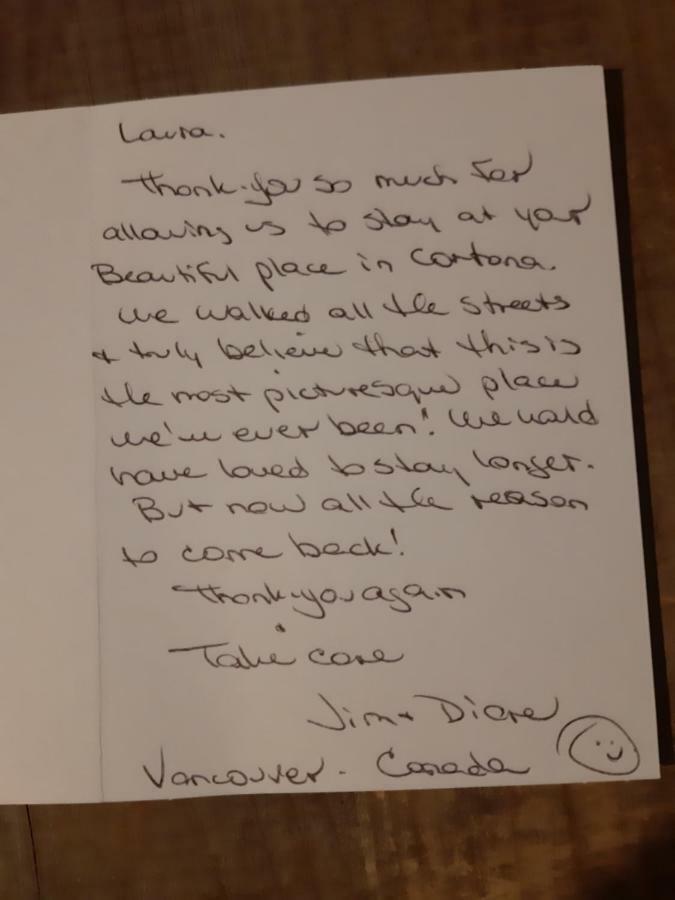 Laura.
Thank-you so much for
allowing us to stay at your
Beautiful place in Cortona.
We walked all the streets
& truly believe that this is
the most picturesque place
we've ever been! We would
have loved to stay longer.
But now all the reason
to come back!
Thank-you again
Take care
Jim & Diane
Vancouver - Canada